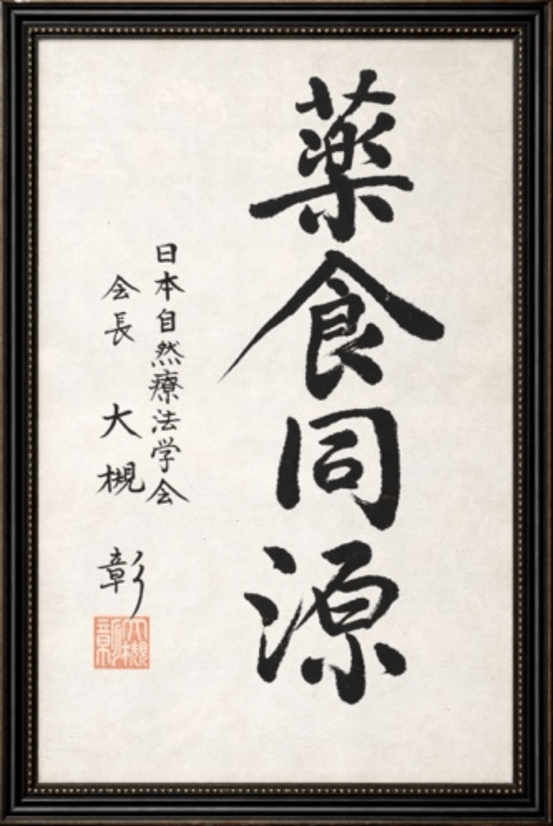 薬食同源
日本自然療法学会
会長 大槻 彰
大槻彰